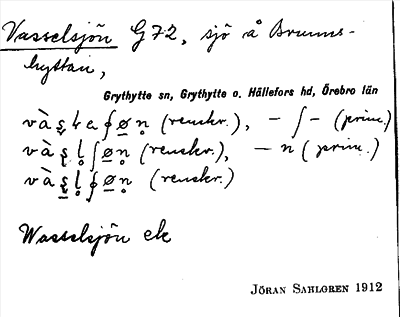 Vasselsjön G72, sjö å Brunns-
hyttan,
Grythytte sn, Grythytte o. Hällefors hd, Örebro län
(renskr.), – ʃ – (prim.)
(renskr.), – n (prim.)
(renskr.)
Wasselsjön ek
JÖRAN SAHLGREN 1912